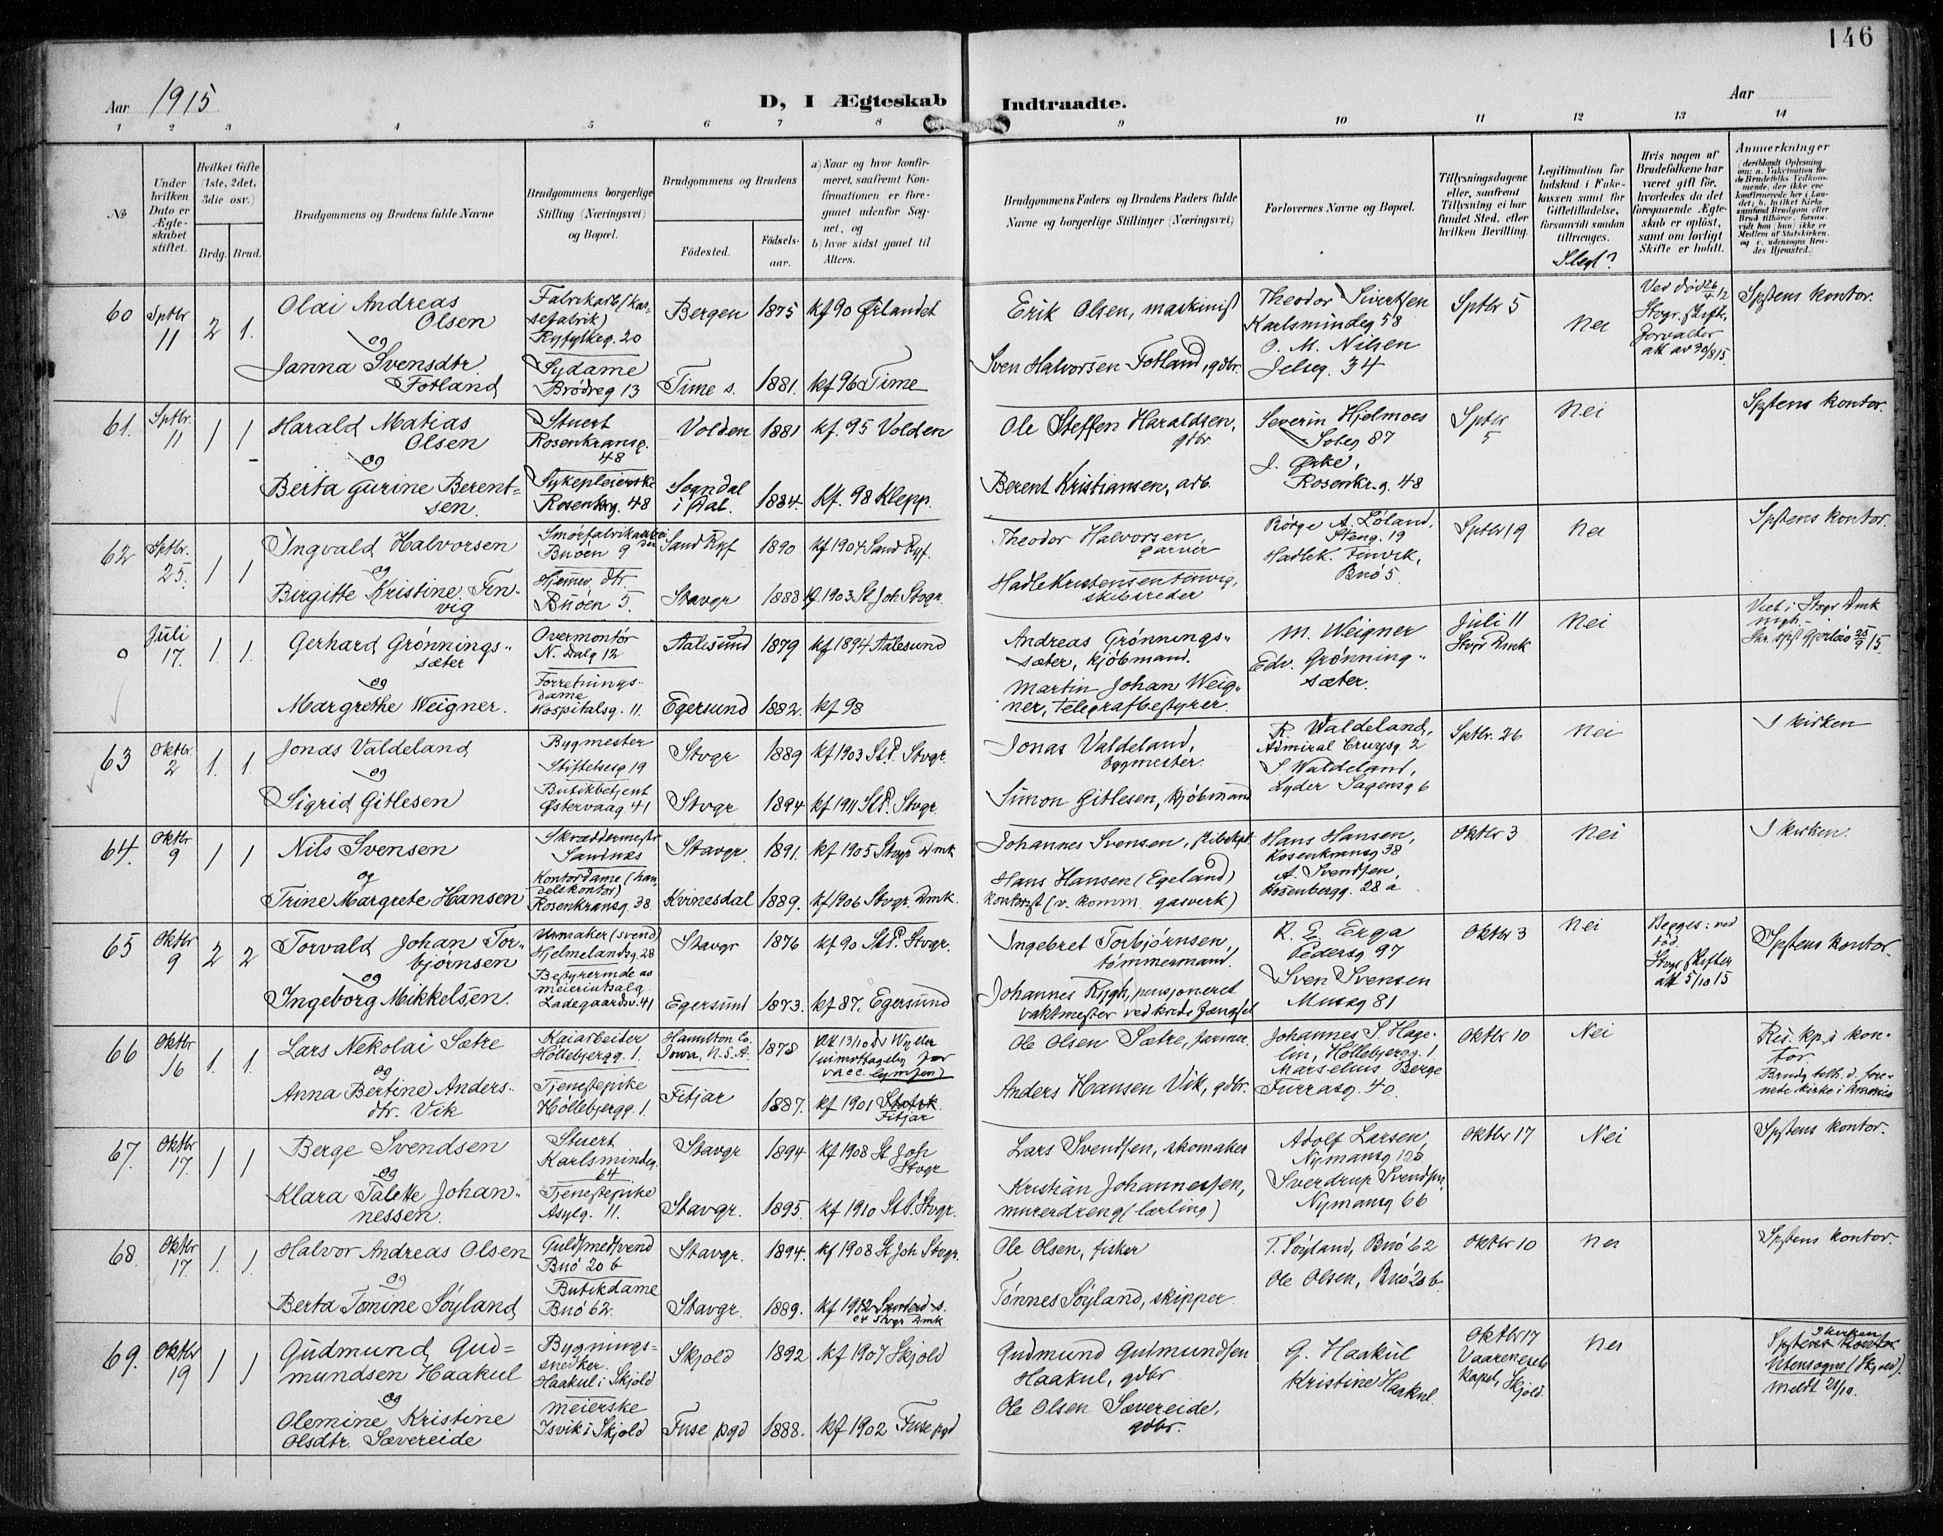 146
Aar 1915
D, I Ægteskab Indtraadte.
Aar
1 2 3 4 5 6 7 8 9 10 11 12 13 14
No
Under hvilken Dato er Ægteskabet stiftet.
Hvilket Gifte (1ste, 2det, 3die osv.)
Brdg. Brud.
Brudgommens og Brudens fulde Navne
Brudgommens borgerlige Stilling (Næringsvei) og Bopæl.
Brudgommens og Brudens
Fødested.
Fødselsaar.
a) Naar og hvor konfirmeret, saafremt Konfirmationen er foregaaet udenfor Sognet, og
b) hvor sidst gaaet til Alters.
Brudgommens Faders og Brudens Faders fulde Navne og borgerlige Stillinger (Næringsvei)
Forlovernes Navne og Bopæl.
Tillysningsdagene eller, saafremt Tillysning ei har fundet Sted, efter hvilken Bevilling.
Legitimation for Indskud i Enkekassen samt for Giftetilladelse, forsaavidt saadan tiltrænges.
Slegt?
Hvis nogen af Brudefolkene har været gift før, hvorledes da det foregaaende Ægteskab er opløst, samt om lovligt Skifte er holdt.
Anmerkninger
60 Sptbr 11 2 1.
Olai Andreas
Olsen
og
Janna Svensdtr.
Fotland
Fabrikarb (kas-
sefabrik)
Ryfylkeg. 20
Sydame
Brødreg 13
Bergen 1875 kf 90 Ørlandet
Time s. 1881. kf 96 Time
Erik Olsen, maskinist
Sven Halvorsen Fotland, gdbr.
Theodor Sivertsen
Karlsmindeg 58
O. M. Nilsen
Jelseg. 34
Sptbr 5
Nei
Ved død
Stvgr. skifte
forvalter
att av 30/8 15
Spstens kontor.
61. Sptbr. 11 1 1
Harald Matias
Olsen
og
Berta Gurine Berent-
sen.
Stuert
Rosenkransg.
48
Sykepleierske
Rosenkrg. 48
Volden 1881 kf. 95 Volden
Sogndal
i Dal. 1884. kf. 98 Klepp.
Ole Steffen Haraldsen,
gdbr
Berent Kristiansen, arb.
Severin Hjelmoes
Soleg 87
J. Ørke,
Rosenkr.g. 48
Sptbr
5
Nei
Spstens kontor.
62 Sptbr. 25. 1 1
Ingvald Halvorsen
og
Birgitte Kristine Fin-
vig
Smørfabrikarbei
der
Buøen 9
Hjemv. dtr.
Buøen 5.
Sand Ryf 1890 kf 1904 Sand Ryf.
Stavgr 1888 kf. 1903 St Joh Stvgr.
Theodor Halvorsen,
garver
Hadle Kristensen Finvig,
skibsreder
Børge A. Løland,
Steng. 19
Hadle K. Finvik,
Buø 5.
Sptbr 19
Nei
Spstens kontor.
0 Juli 17. 1 1.
Gerhard Grønnings-
sæter
og
Margrethe Weigner.
Overmontør
N. Dalg 12
Forretnings-
dame
Hospitalsg. 11.
Aalesund 1879 kf 1894 Aalesund
Egersund 1882. kf 98
Andreas Grønnings-
sæter, kjøbmand.
Martin Johan Weig-
ner, telegrafbestyrer.
M. Weigner
Edv. Grønning-
sæter.
Juli 11
Stvgr Dmk
Nei
Viet i Stvgr Dmk
63 Oktbr. 2 1. 1.
Jonas Valdeland
og
Sigrid Gitlesen
Bygmester
Stiftelsesg 19
Butikbetjent
Østervaag 41
Stvgr 1889 kf 1903 St P. Stvgr.
Stvgr 1894 kf 1911 St P. Stvgr.
Jonas Valdeland,
bygmester.
Simon Gitlesen, kjøbmand
R. Waldeland,
Admiral Cruysg. 2
S. Waldeland,
Lyder Sagensg 6
Sptbr. 26
Nei
I kirken
64. Oktbr 9 1 1
Nils Svensen
og
Trine Margrete Hansen
Skræddermester
Sandnes
Kontordame (han
delskontor)
Rosenkransg. 38.
Stavgr. 1891. kf 1905 Stvgr Dmk
Kvinesdal 1889. kf 1906 Stvgr. Dmk.
Johannes Svensen,
Hans Hansen (Egeland)
kontorist (v. komm. gasverk)
Hans Hansen,
Rosenkransg 38
A. Svendsen,
Rosenbergg. 28 a
Oktbr 3
Nei
I kirken.
65 Oktbr 9 2 2
Torvald Johan Tor-
bjørnsen
og
Ingeborg Mikkelsen.
Urmaker (svend)
Hjelmelandsg. 28
Bestyrerinde av
meieriutsalg.
Ladegaardsv. 41
Stavgr 1876 kf 90 St P. Stvgr.
Egersund 1873. kf 87. Egersund
Ingebret Torbjørnsen,
tømmermand.
Johannes Rygh, pensjoneret
vaktmester ved krets fængsel
K. E. Erga
Pedersg 97
Sven Svensen
Museg 81
Oktbr 3
Nei
Begges: ved
død.
Stvgr. skifter
att 5/10 15
Spstens kontor.
66 Oktbr. 16 1. 1.
Lars Nekolai Sætre
og
Anna Bertine Anders-
dtr. Vik
Kaiarbeider
Høllebjergg. 1.
Tjenestepike
Høllebjergg. 1.
Hamilton Co.
Iowa, U.S.A. 1878
Fitjar 1887. kf 1901
Fitjar
Ole Olsen Sætre, farmer.
Anders Hansen Vik, gdbr.
Johannes S. Hage-
lin, Høllebjergg. 1
Marselius Berge
Furrasg. 40.
Oktbr 10
Nei
Res. kp. s kon-
tor
Brudg tilh. d. fore-
nede kirke i Amerika
67. Oktbr 17. 1 1
Berge Svendsen
og
Klara Talette Johan-
nessen.
Stuert
Karlsmindeg.
64
Tjenestepike
Asylg. 11.
Stavgr 1894 kf 1908 St Joh
Stvgr
Stavgr. 1895. kf 1910 St P. Stvgr.
Lars Svendsen, skomaker
Kristian Johannessen,
murerdreng (lærling)
Adolf Larsen
Nymansg 120
Sverdrup Svendsen,
Nymansg 66
Oktbr 17
Nei
Spstens kontor.
68. Oktbr 17. 1. 1.
Halvor Andreas Olsen
og
Berta Tomine Søyland
Guldsmedsvend
Buø 20 b
Butikdame
Buø 62.
Stavgr. 1894. kf 1908 St Joh Stvgr.
Stavgr 1889.
04 Stvgr Dmk
Ole Olsen, fisker
Tønnes Søyland, skipper.
T. Søyland, Buø 62
Ole Olsen, Buø 20 b.
Oktbr 10
Nei
Spstens kontor.
69. Oktbr 19 1 1
Gudmund Gud-
mundsen Haakul
og
Olemine Kristine
Olsdtr. Sævereide
Bygnings-
snedker.
Haakul i Skjold
Meierske
Isvik i Skjold
Skjold 1892 kf 1907 Skjold
Fuse pgd 1888. kf 1902 Fuse pgd
Gudmund Gudmundsen
Haakul, gdbr
Ole Olsen Sævereide,
gdbr.
G. Haakul
Kristine Haakul.
Oktbr 17
Vaarenes
kapel, Skjold.
Nei
I kirken
Spstens kontor
Utensogns (Skjold).
meldt 21/10.